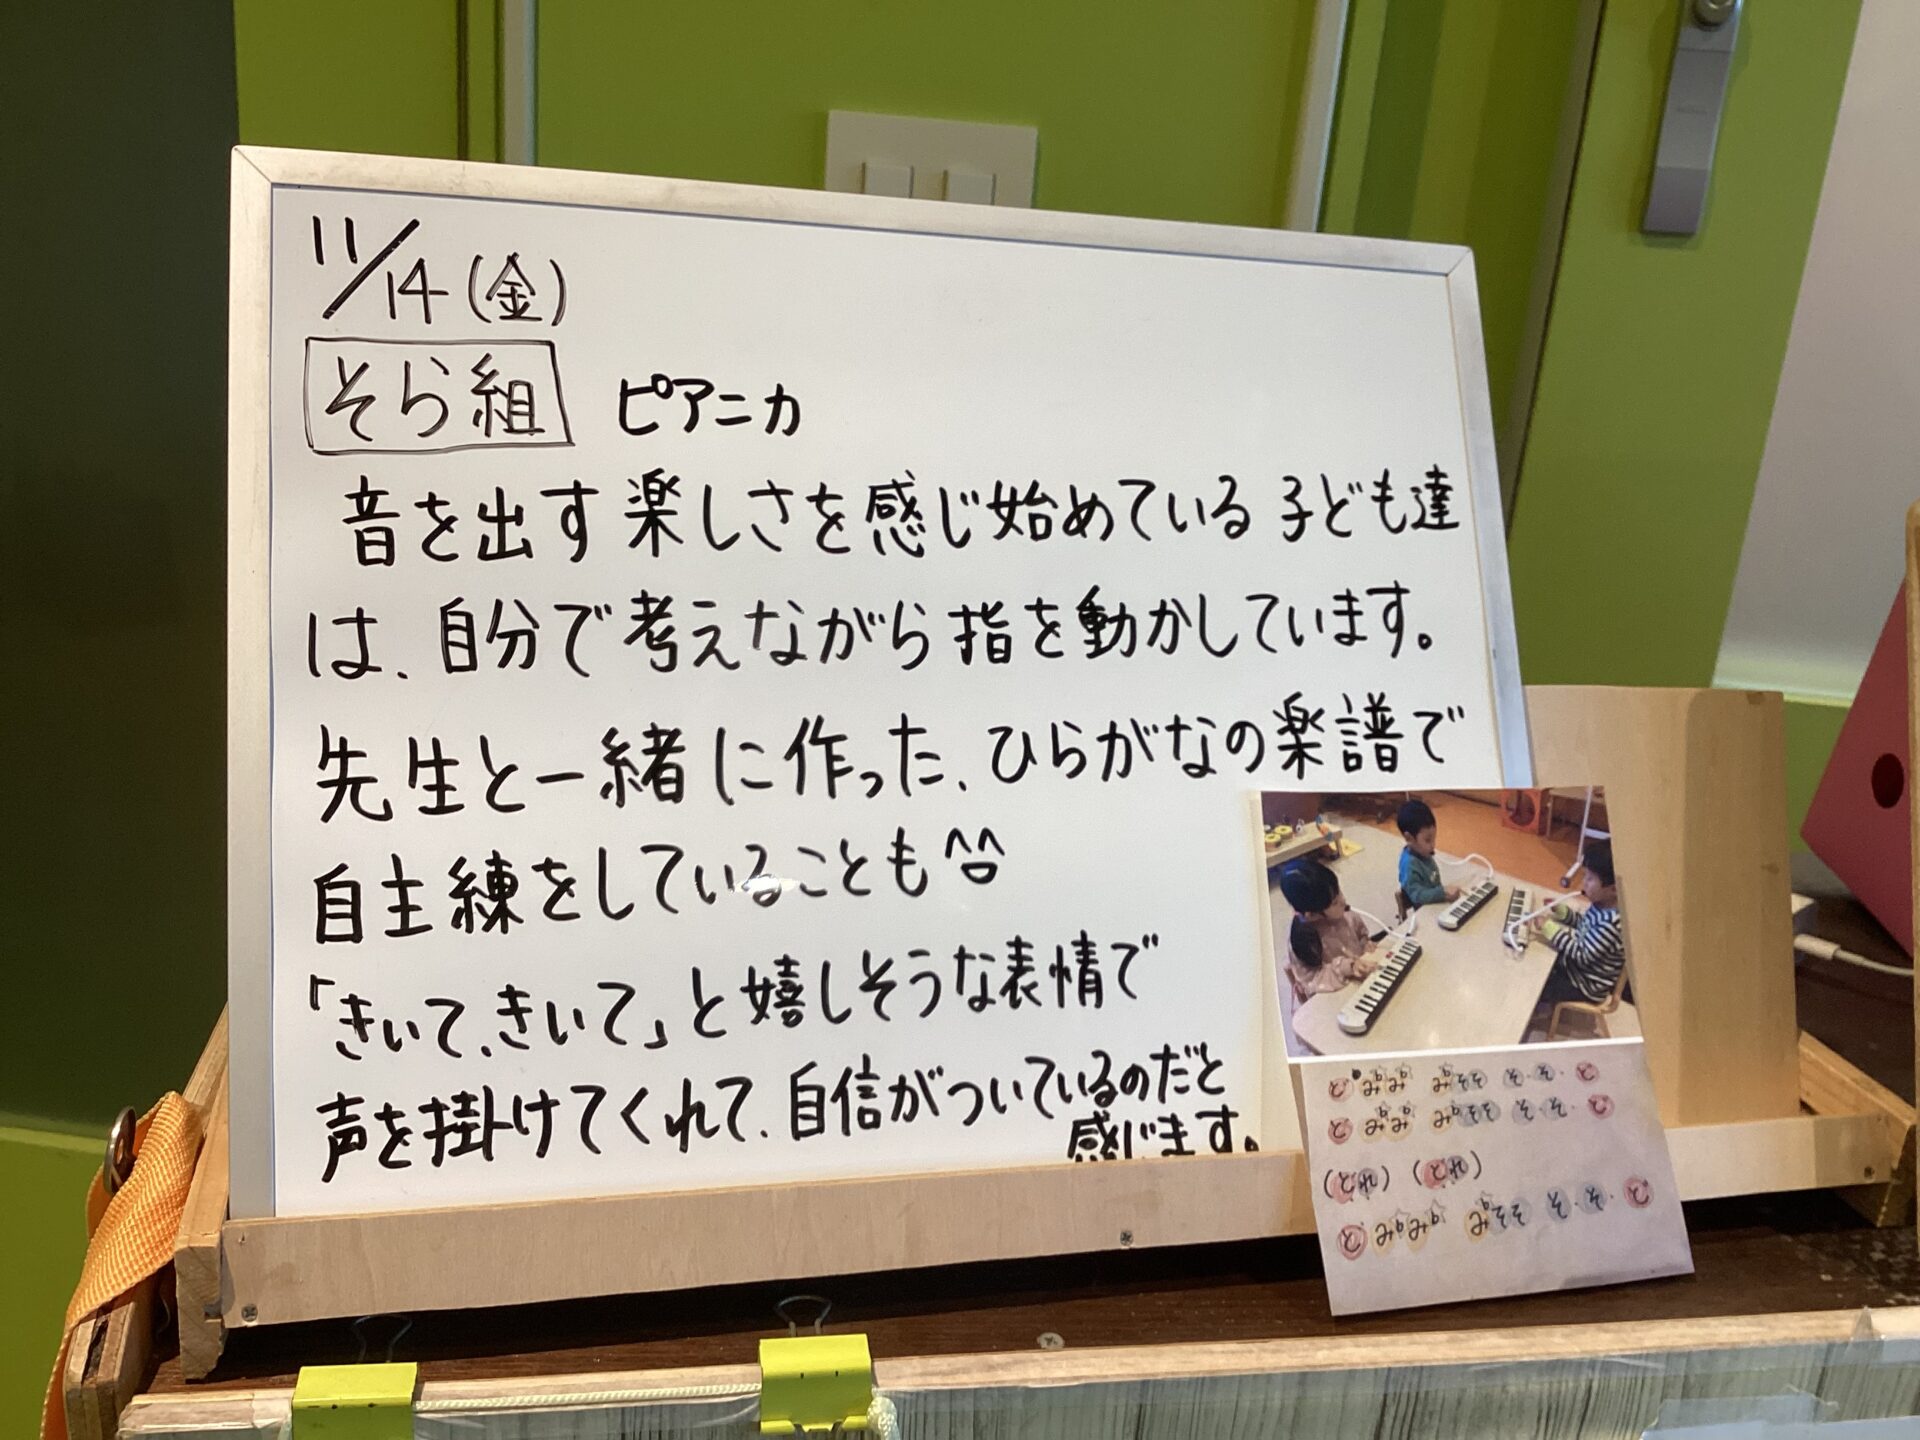 11/14(金)
そら組 ピアニカ
音を出す楽しさを感じ始めている子ども達
は、自分で考えながら指を動かしています。
先生と一緒に作った、ひらがなの楽譜で
自主練をしていることも^^
「きいて、きいて」と嬉しそうな表情で
声を掛けてくれて、自信がついているのだと
感じます。
(どれ)(どれ)